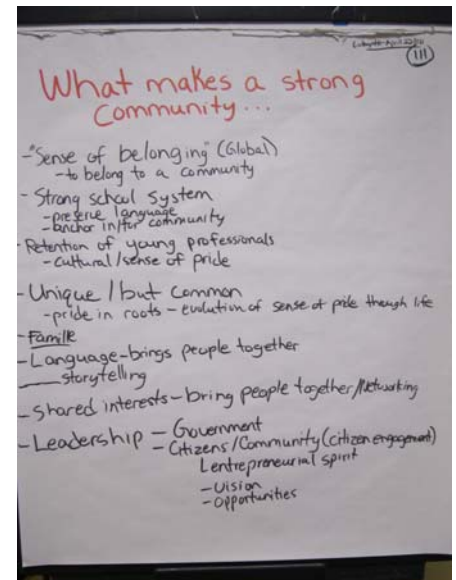 111
What makes a strong
Community...
-"Sense of belonging" (Global)
-to belong to a community
- Strong school system
-preserve language
-anchor in/for community
- Retention of young professionals
-cultural/sense of pride
- Unique / but common
-pride in roots - evolution of sense of pride through life
- Famille
- Language-brings people together
storytelling
- Shared interests-bring people together/Networking
- Leadership - Government
- Citizens/Community (citizen engagement)
entrepreneurial spirit
-Vision
-Opportunities